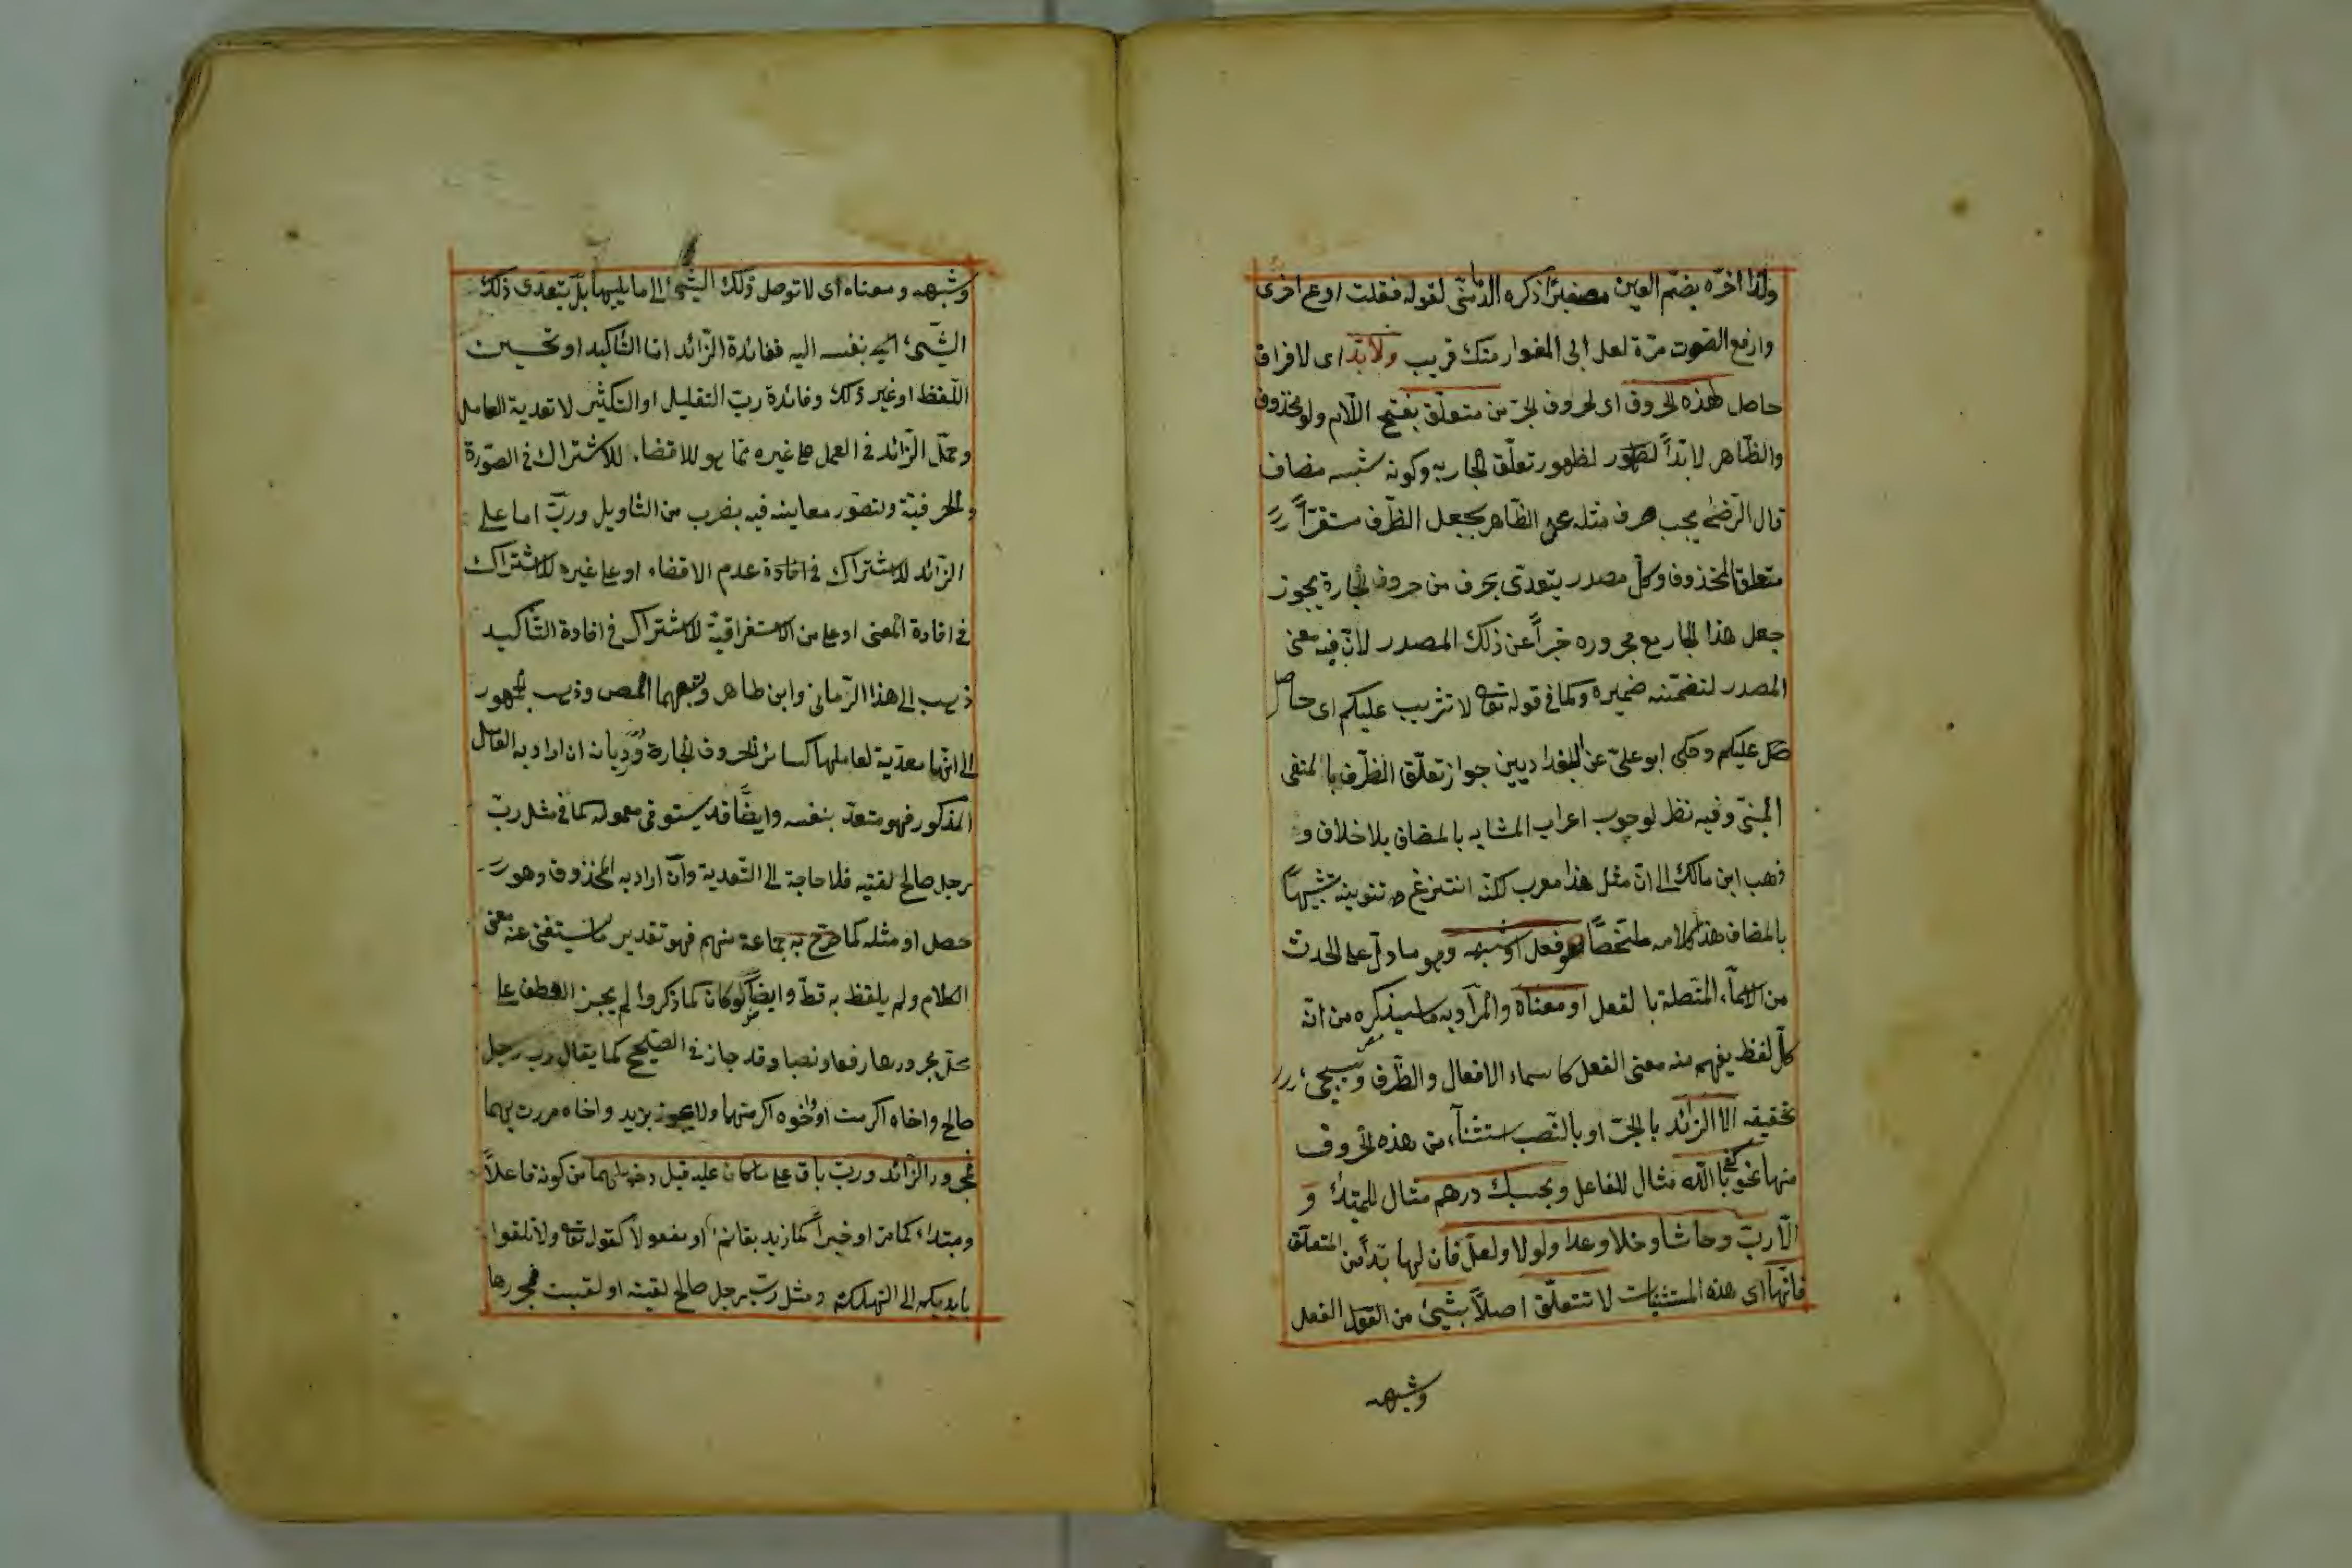 ولذا اخره بضم العين مصغرا ذكره الدلنتى لقوله فقلت ادع اخرى
وارفع الصوت مرة لعل ابى المغوار منك قريب ولا بد اى لا فراق
حاصل لهذه الحروف اى لحروف الجر من متعلق بفتح اللام ولو محذوف
والظاهر لا بداً لظهور تعلق الجار به وكونه شبه مضاف
قال الرضى يجب صرف مثله عن الظاهر بجعل الظرف مستقراً
متعلق المحذوف وكل مصدر يتعدى بحرف من حروف الجارة يجوز
جعل هذا الجار مع مجروره خبراً عن ذلك المصدر لان فيه معنى
المصدر لتضمنه ضميره وكما فى قوله تعالى لا تثريب عليكم اى حاصل
عليكم وحكى ابو على عن البغداديين جواز تعلق الظرف بالمنفى
المبنى وفيه نظر لوجوب اعراب المشابه بالمضاف بلا خلاف و
ذهب ابن مالك الى ان مثل هذا معرب لكنه انتزع تنوينه تشبيهاً
بالمضاف هذا كلامه ملخصاً هو فعل او شبهه وهو ما دل على الحدث
من الاسماء المتصلة بالفعل او معناه والمراد به ما سيذكره من انه
كل لفظ يفهم منه معنى الفعل كاسماء الافعال والظرف وسيجئ
تحقيقه الا الزائد بالجر او بالنصب استثناء من هذه الحروف
منها نحو كفى بالله مثال للفاعل وبحسبك درهم مثال للمبتدأ و
الا رب وحاشا وخلا وعدا ولولا ولعل فان لها بداً من المتعلق
فانها اى هذه المستثنيات لا تتعلق اصلاً بشئ من القول الفعل
وشبهه
وشبهه ومعناه اى لا توصل ذلك الشئ الى ما يليها بل يتعدى ذلك
الشئ بنفسه اليه ففائدة الزائد اما التاكيد او تحسين
اللفظ او غير ذلك وفائدة رب التقليل او التكثير لا تعدية العامل
وحمل الزائد فى العمل على غيره مما هو للافضاء للاشتراك فى الصورة
والحرفية ولتصور معاينه فيه بضرب من التاويل ورب اما على
الزائد للاشتراك فى افادة عدم الافضاء او على غيره للاشتراك
فى افادة المعنى او على من الاستغراقية للاشتراك فى افادة التاكيد
ذهب الى هذا الرمانى وابن طاهر وتبعهما المص وذهب الجمهور
الى انها معدية لعاملها كسائر الحروف الجارة ورد بانه ان اراد به العامل
المذكور فهو متعد بنفسه وايضاً قد يستوفى معموله كما فى مثل رب
رجل صالح لقيته فلا حاجة الى التعدية وان اراد به المحذوف وهو
حصل او مثله كما صرح به جماعة منهم فهو تقدير ما يستغنى عنه معنى
الكلام ولم يلفظ به قط وايضاً لو كان كما ذكروا لم يجز العطف على
محل مجرورها رفعا ونصبا وقد جاز فى الصحيح كما يقال رب رجل
صالح واخاه اكرمت او واخوه اكرمتهما ولا يجوز بزيد واخاه مررت بهما
فمجرور الزائد ورب باق على ما كان عليه قبل دخولهما من كونه فاعلاً
ومبتداء كما مر او خبراً كما زيد بقائم او مفعولا كقوله تعالى ولا تلقوا
بايديكم الى التهلكة ومثل رب رجل صالح لقيته او لقيت فمجرورها